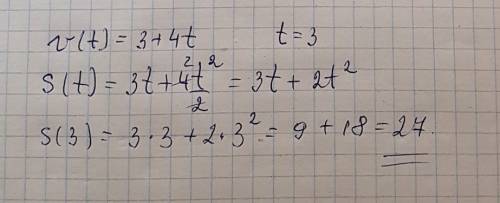 v(t) = 3+4t t=3
S(t) = 3t + 4t²/2 = 3t + 2t²
S(3) = 3·3 + 2·3² = 9 + 18 = 27.